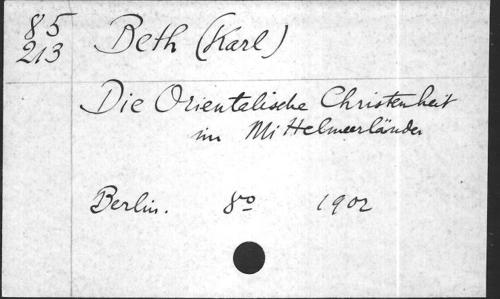 85
213
Beth (Karl)
Die Orientalische Christenheit
im Mittelmeerländer
Berlin. 8º 1902